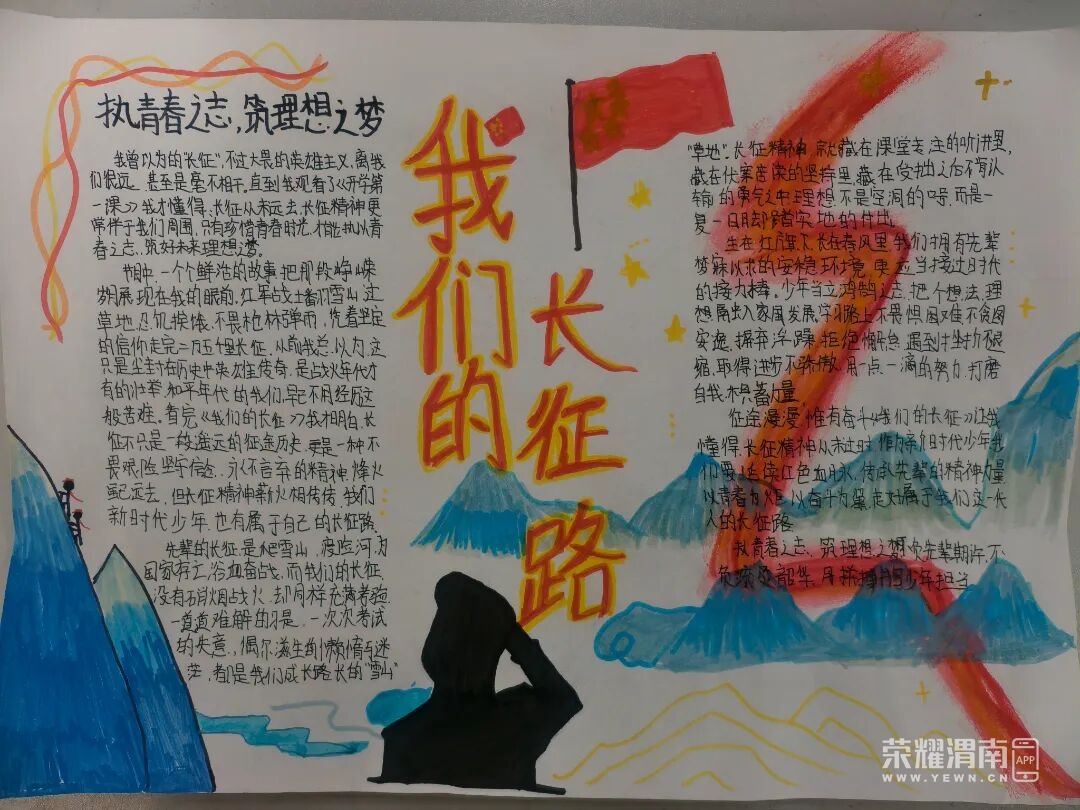 执青春之志，筑理想之梦
我曾以为的"长征"，不过大畏的英雄主义，离我
们很远，甚至是毫不相干。直到我观看了《开学第
一课》我才懂得，长征从未远去，长征精神更
常伴于我们周围，只有珍惜青春时光，才能执以青
春之志，筑好未来理想之梦。
节目中，一个个鲜活的故事把那段峥嵘
岁月展现在我的眼前。红军战士翻雪山，过
草地，忍饥挨饿，不畏枪林弹雨，凭着坚定
的信仰走完二万五千里长征，从前我总以为，这
只是尘封在历史中英雄传奇，是战火年代才
有的壮举，和平年代的我们，早已不用经历这
般苦难。看完《我们的长征》我才明白，长
征不只是一段遥远的征途历史，更是一种不
畏艰险，坚守信念，永不言弃的精神，烽火
虽已远去，但长征精神薪火相传，我们
新时代少年，也有属于自己的长征路。
先辈的长征，是爬雪山，渡险河，为
国家存亡浴血奋战，而我们的长征，
没有硝烟战火，却同样充满考验
一道道难解的习题，一次次考试
的失意，偶尔滋生的懒惰与迷
茫，都是我们成长路长的"雪山"
我们的
长征路
"草地"。长征精神，就藏在课堂专注的听讲里，
藏在伏案苦读的坚持里，藏在受挫之后不言认
输的勇气之中，理想不是空洞的口号，而是一
复一日脚踏实地的付出。
生在红旗下，长在春风里，我们拥有先辈
梦寐以求的安稳环境，更应当接过时代
的接力棒。少年当立鸿鹄之志，把个想法，理
想融入家国发展，学习路上不畏惧困难，不贪图
安逸，摒弃浮躁，拒绝懒惰，遇到挫折不退
缩，取得进步不骄傲，用一点一滴的努力，打磨
自我，积蓄力量。
征途漫漫，惟有奋斗，《我们的长征》让我
懂得，长征精神从未过时，作为新时代少年，我
们要赓续红色血脉，传承先辈的精神力量
以青春为炬，以奋斗为笔，走好属于我们这一代
人的长征路。
执青春之志，筑理想之梦，不负先辈期许，不
负韶华，用拼搏书写少年担当
荣耀渭南 APP
WWW.YEWN.CN